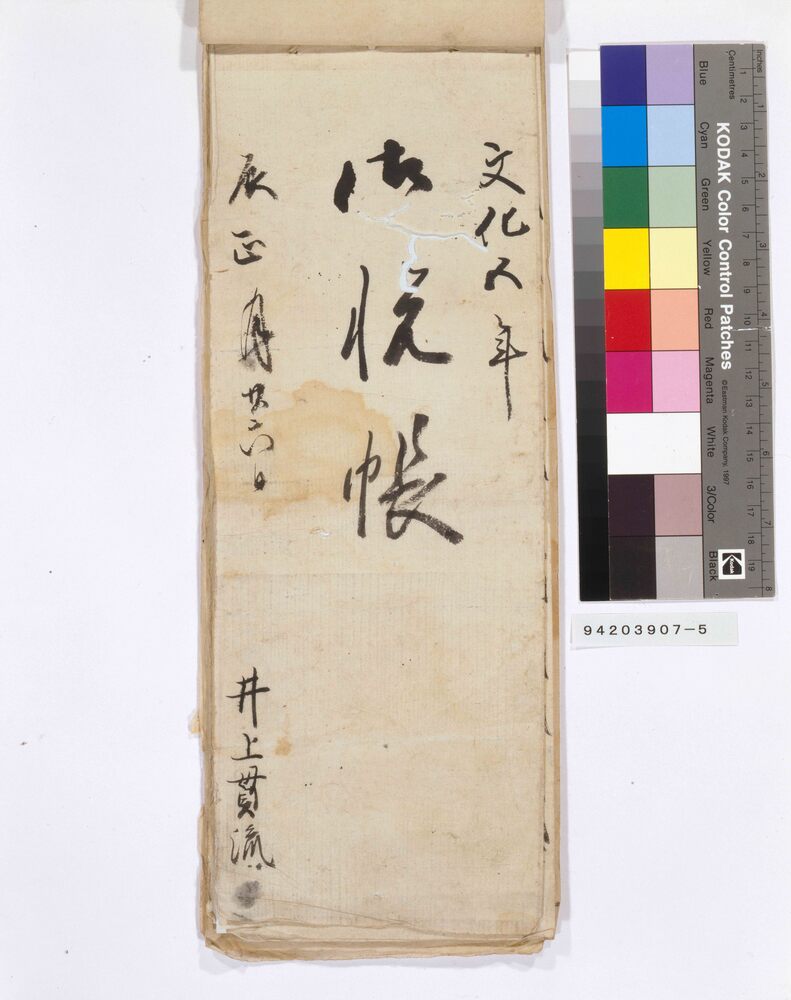 文化五年
御悦帳
辰正月廿六日
井上貫流
Inches
1 2 3 4 5 6 7 8
Centimetres
1 2 3 4 5 6 7 8 9 10 11 12 13 14 15 16 17 18 19
KODAK Color Control Patches
©Eastman Kodak Company, 1997
Kodak
Blue
Cyan
Green
Yellow
Red
Magenta
White
3/Color
Black
94203907-5